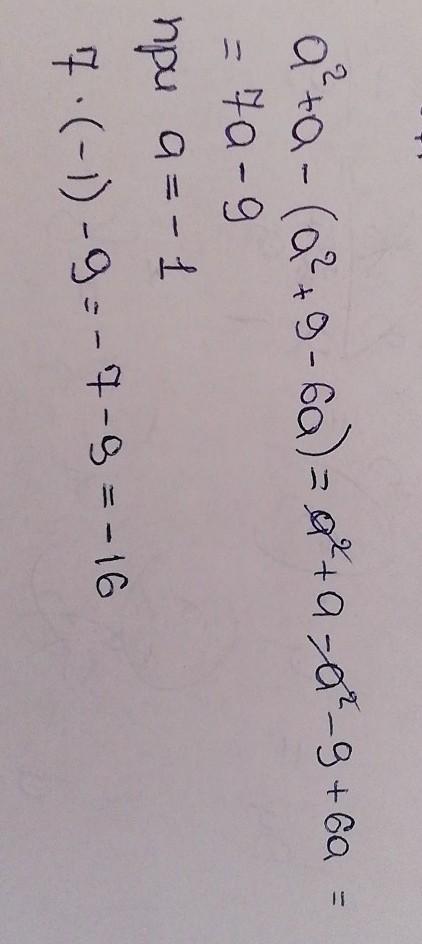 a² + a - (a² + 9 - 6a) = a² + a - a² - 9 + 6a =
= 7a - 9
при a = -1
7 · (-1) - 9 = -7 - 9 = -16